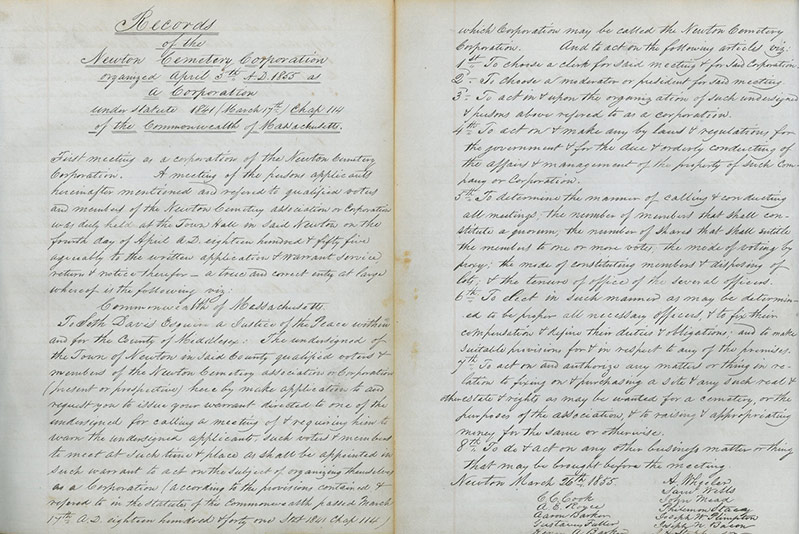 Records
of the
Newton Cemetery Corporation
organized April 5th A.D. 1855 as
A Corporation
under statute 1841 (March 17th) Chap 114
of the Commonwealth of Massachusetts.
First meeting as a corporation of the Newton Cemetery
Corporation. A meeting of the persons applicants
hereinafter mentioned and referred to qualified voters
and members of the Newton Cemetery association or Corporation
was duly held at the Town Hall in said Newton on the
fourth day of April A.D. eighteen hundred & fifty five
agreeably to the written application & warrant service
return & notice therefor – a true and correct entry at large
whereof is the following viz:
Commonwealth of Massachusetts.
To Seth Davis Esquire a Justice of the Peace within
and for the County of Middlesex: The undersigned of
the Town of Newton in Said County qualified voters &
members of the Newton Cemetery association or Corporation
(present or prospective) here by make application to and
request you to issue your warrant directed to one of the
undersigned for calling a meeting of & requiring him to
warn the undersigned applicants, such voters & members
to meet at such time & place as shall be appointed in
such warrant to act on the subject of organizing themselves
as a Corporation (according to the provisions contained &
refered to in the statutes of this Commonwealth passed March
17th A.D. eighteen hundred & forty one Stat 1841 Chap 114)
which Corporation may be called the Newton Cemetery
Corporation. And to act on the following articles viz:
1st To choose a clerk for said meeting & for said Corporation
2d To choose a moderator or president for said meeting
3d To act in & upon the organization of such undersigned
& persons above refered to as a corporation.
4th To act on & make any by laws & regulations for
the government & for the due & orderly conducting of
the affairs & management of the property of such Com-
pany or Corporation.
5th To determine the manner of calling & conducting
all meetings; the number of members that shall con-
stitute a quorum, the number of shares that shall entitle
the members to one or more votes, the mode of voting by
proxy; the mode of constituting members & disposing of
lots, & the tenure of office of the several officers.
6th To elect in such manner as may be determin-
ed to be proper all necessary officers, & to fix their
compensation & define their duties & obligations; and to make
suitable provisions for & in respect to any of the premises.
7th To act on and authorize any matter or thing in re-
lation to fixing on & purchasing a site & any such real &
other estate & rights as may be wanted for a cemetery, or the
purposes of the association, & to raising & appropriating
money for the same or otherwise.
8th To do & act on any other business matter or thing
that may be brought before the meeting
Newton March 26th 1855. A. Whistler
C. C. Cook Saml Wells
A. E. John Mead
Aaron Barker Philemon Stacy
Gustavus Fuller Joseph W. Plimpton
A. Barker Joseph N. Bacon